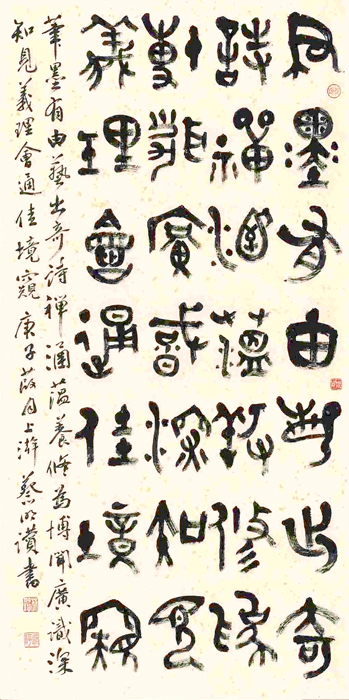 筆墨有由藝出奇
詩禪涵薀養修為
博聞廣識深知見
義理會通佳境窺
筆墨有由藝出奇詩禪涵薀養修為博聞廣識深
知見義理會通佳境窺庚子葭月上澣蔡明讚書